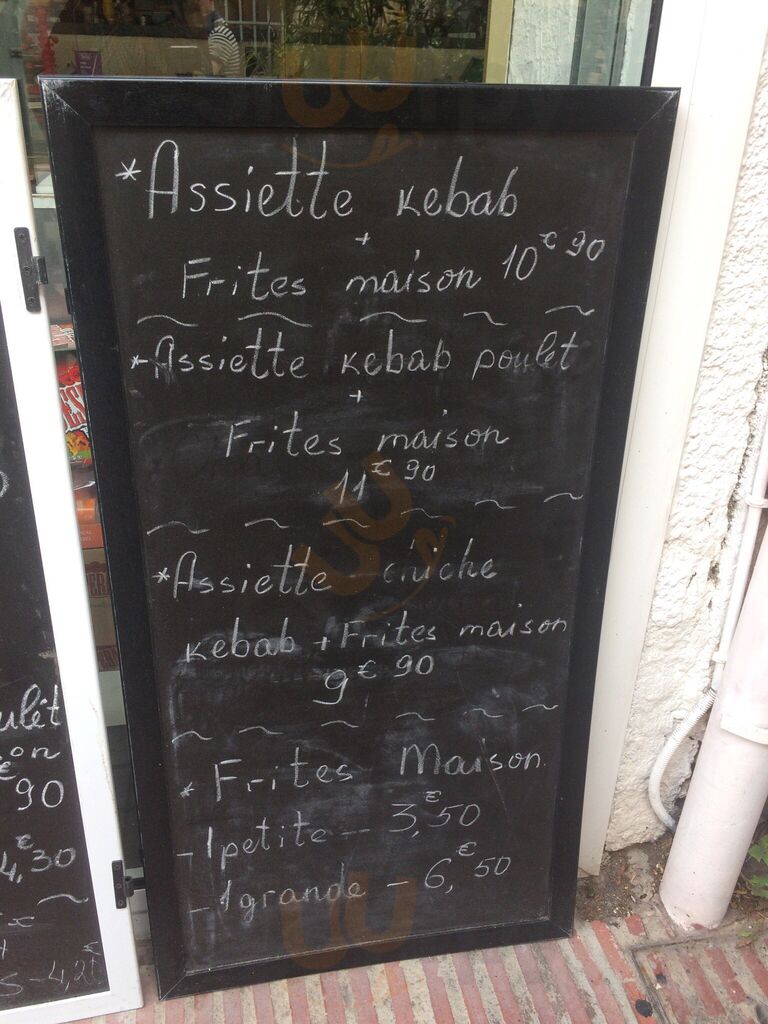 *Assiette kebab
+
Frites maison 10€90
*Assiette kebab poulet
+
Frites maison
11€90
*Assiette chiche
kebab + Frites maison
9€90
* Frites Maison
- 1 petite - 3,€50
- 1 grande - 6,€50
ulet
on
€
90
4,€30